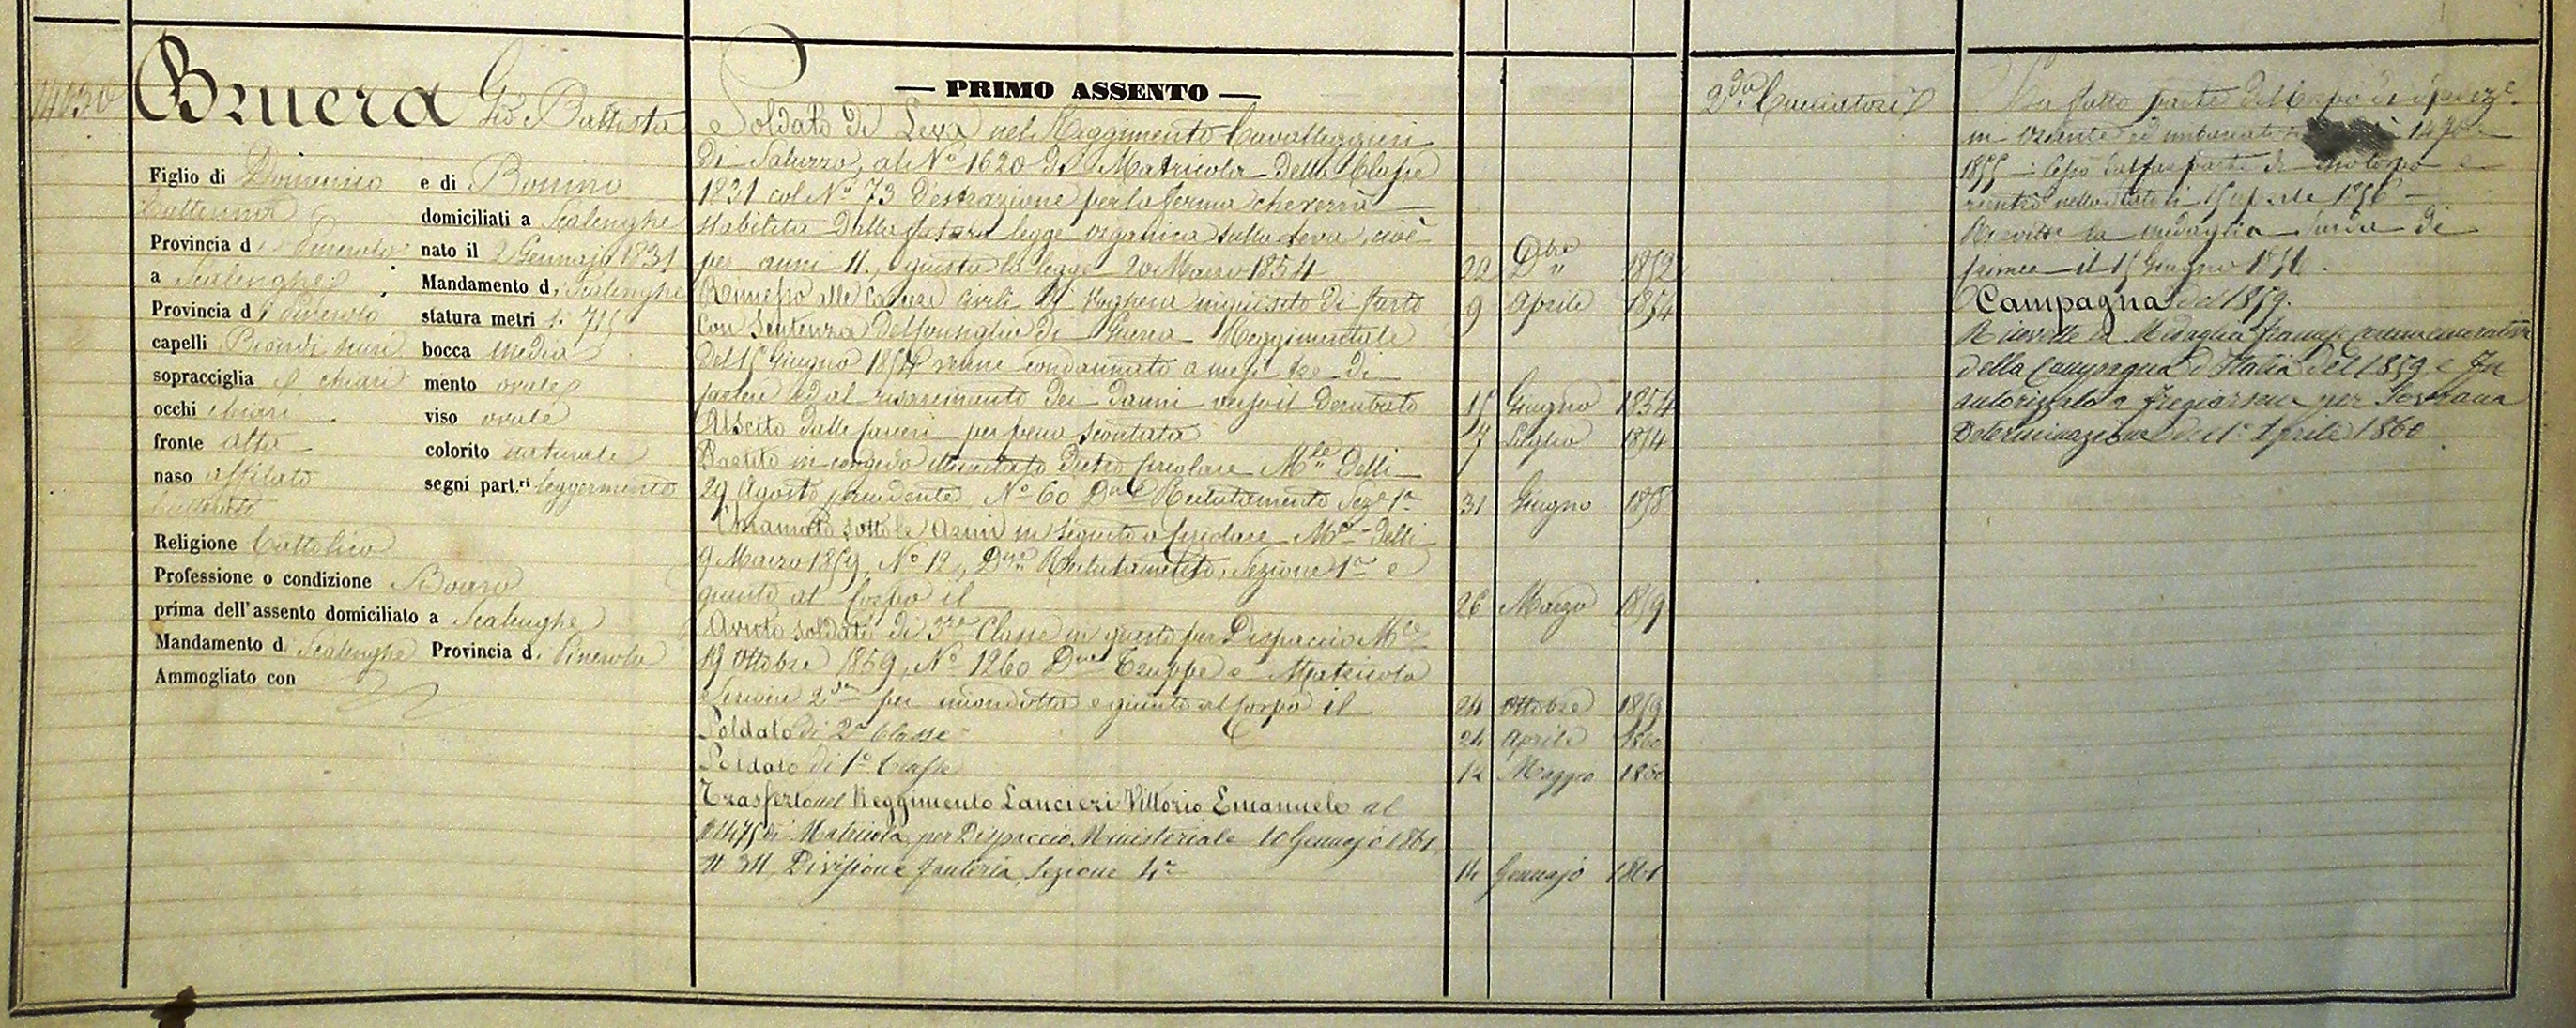 14030
Bruera Gio Battista
Figlio di Domenico e di Bonino
Catterina domiciliati a Scalenghe
Provincia d. Pinerolo nato il 2 Gennajo 1831
a Scalenghe Mandamento d. Scalenghe
Provincia d. Pinerolo statura metri 1. 715
capelli Biondi scuri bocca media
sopracciglia chiari mento ovale
occhi chiari viso ovale
fronte alta colorito naturale
naso affilato segni part.ri leggermente
butterato
Religione Cattolica
Professione o condizione Boaro
prima dell'assento domiciliato a Scalenghe
Mandamento d. Scalenghe Provincia d. Pinerolo
Ammogliato con
— PRIMO ASSENTO —
Soldato di Leva nel Reggimento Cavalleggieri
di Saluzzo, al No 1620 di Matricola della Classe
1831 col No 73 d'estrazione per la ferma che verrà
stabilita dalla futura legge organica sulla leva, cioè
per anni 11, giusta la legge 20 Marzo 1854 22 Dbre 1852
Rimesso alle Carceri Civili di Voghera inquisito di furto 9 Aprile 1854
Con Sentenza del Consiglio di Guerra Reggimentale
del 15 Giugno 1854 venne condannato a mesi tre di
carcere ed al risarcimento dei danni verso il derubato 15 Giugno 1854
Uscito dalle carceri per pena scontata 7 Luglio 1854
Partito in congedo illimitato dietro circolare Mle delli
29 Agosto precedente No 60 Dne Reclutamento Seze 1a 31 Giugno 1858
Chiamato sotto le Armi in seguito a Circolare Mle delli
9 Marzo 1859, No 12, Dne Reclutamento, Sezione 1a e
giunto al Corpo il 26 Marzo 1859
Avuto soldato di 3za Classe in questo per Dispaccio Mle
19 Ottobre 1859, No 1260 Dne Truppe e Matricola
Sezione 2da per micondotta e giunto al Corpo il 24 Ottobre 1859
Soldato di 2a Classe 24 Aprile 1860
Soldato di 1a Classe 12 Maggio 1860
Trasferto nel Reggimento Lancieri Vittorio Emanuele al
N 1475 di Matricola, per Dispaccio Ministeriale 10 Gennajo 1861,
N 311, Divisione fanteria, Sezione 4a 14 Gennajo 1861
2da Cacciatori
Ha fatto parte del Corpo di spedize
in oriente ed imbarcato 1470
1855 Cessò dal far parte di corpo e
rientrò nello Stato li 15 1856
Ricevette la medaglia
il 15 Giugno 1856.
Campagna del 1859.
Ricevette la Medaglia francese commemorativa
della Campagna d'Italia del 1859 e fu
autorizzato a fregiarsene per Sovrana
Determinazione del 1o Aprile 1860